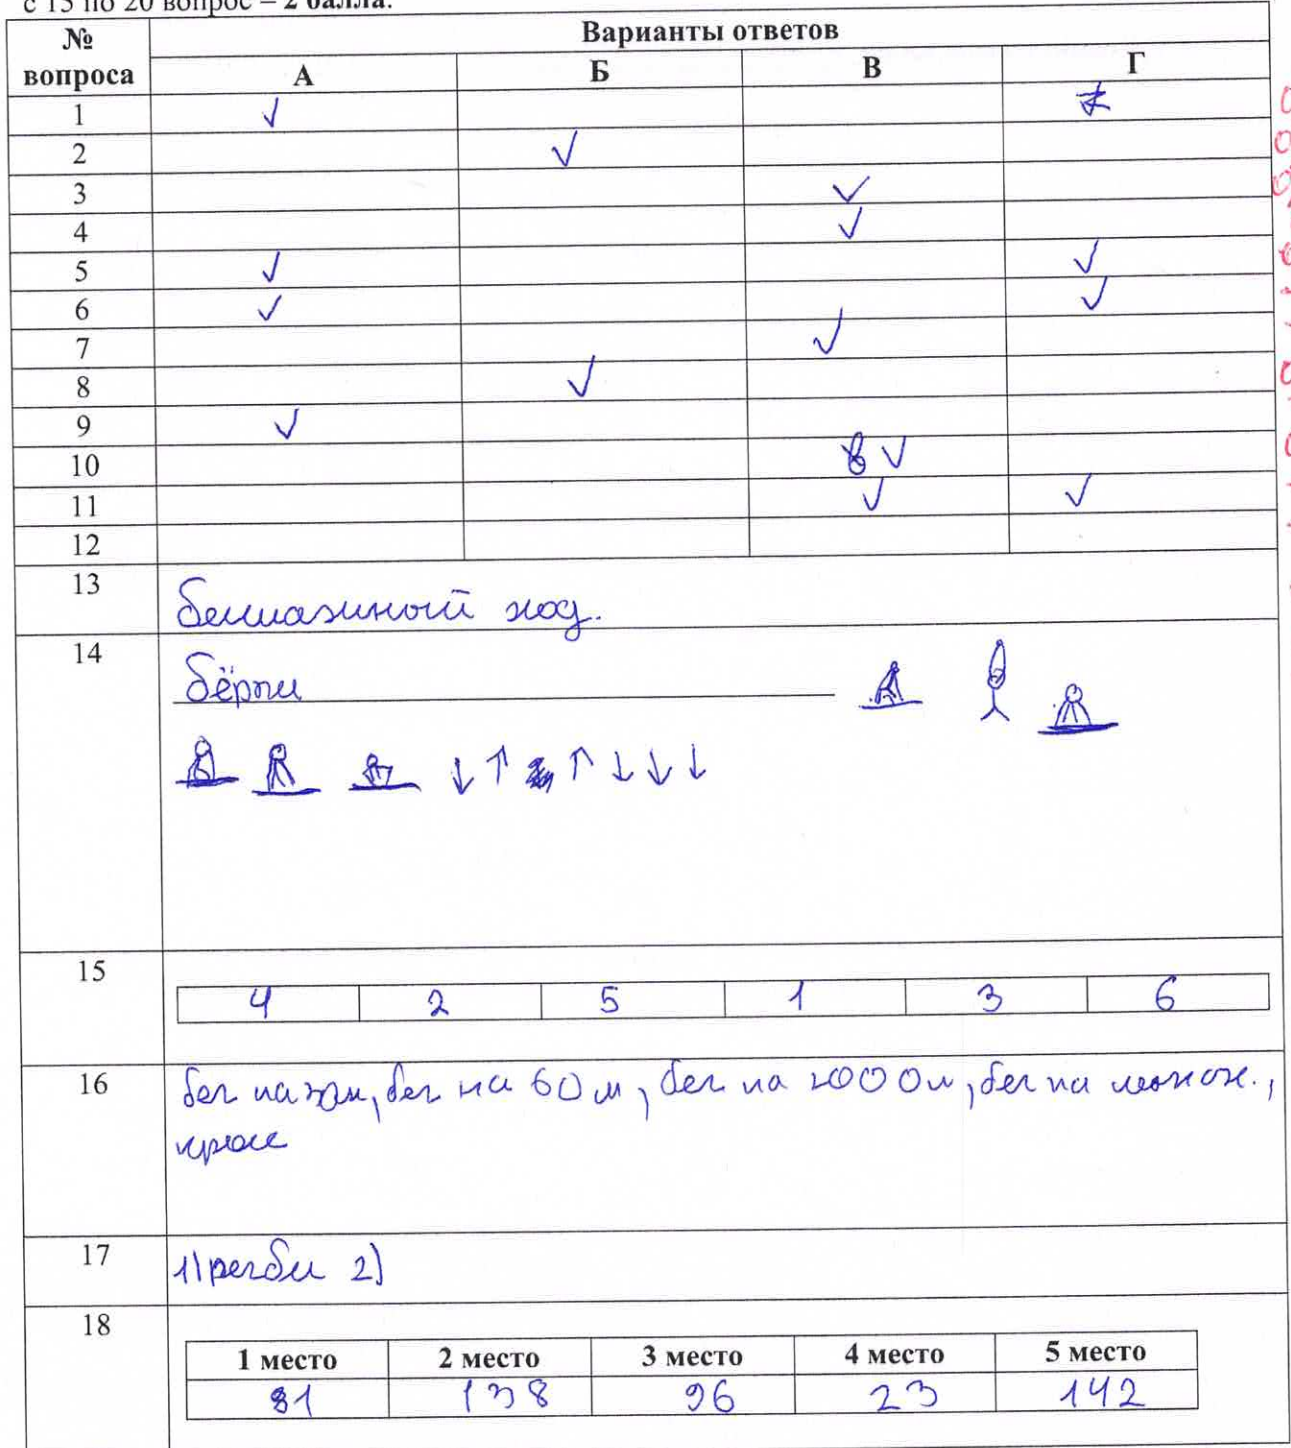 с 15 по 20 вопрос – 2 балла.
№ вопроса Варианты ответов
А Б В Г
1 ✓
2 ✓
3 ✓
4 ✓
5 ✓ ✓
6 ✓ ✓
7 ✓
8 ✓
9 ✓
10 ✓
11 ✓ ✓
12
13
ход.
14
бёрпи
↓ ↑ ↑ ↓ ↓ ↓
15
4 2 5 1 3 6
16
бег на 30м, бег на 60 м, бег на 1000м, бег на
кросс
17
1) регби 2)
18
1 место 2 место 3 место 4 место 5 место
81 138 96 23 142